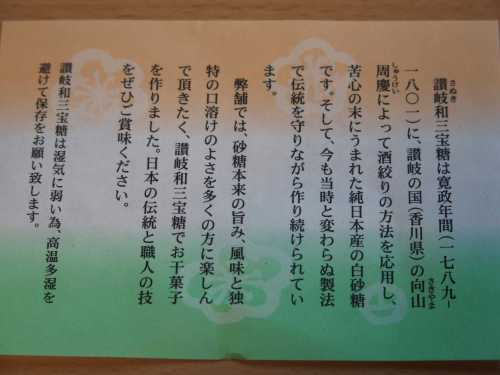 讃岐和三宝糖は寛政年間(一七八九-
さぬき
一八〇一)に、讃岐の国(香川県)の向山
さきやま
周慶によって酒絞りの方法を応用し、
しゅうけい
苦心の末にうまれた純日本産の白砂糖
です。そして、今も当時と変わらぬ製法
で伝統を守りながら作り続けられてい
ます。
弊舗では、砂糖本来の旨み、風味と独
特の口溶けのよさを多くの方に楽しん
で頂きたく、讃岐和三宝糖でお干菓子
を作りました。日本の伝統と職人の技
をぜひご賞味ください。
讃岐和三宝糖は湿気に弱い為、高温多湿を
避けて保存をお願い致します。